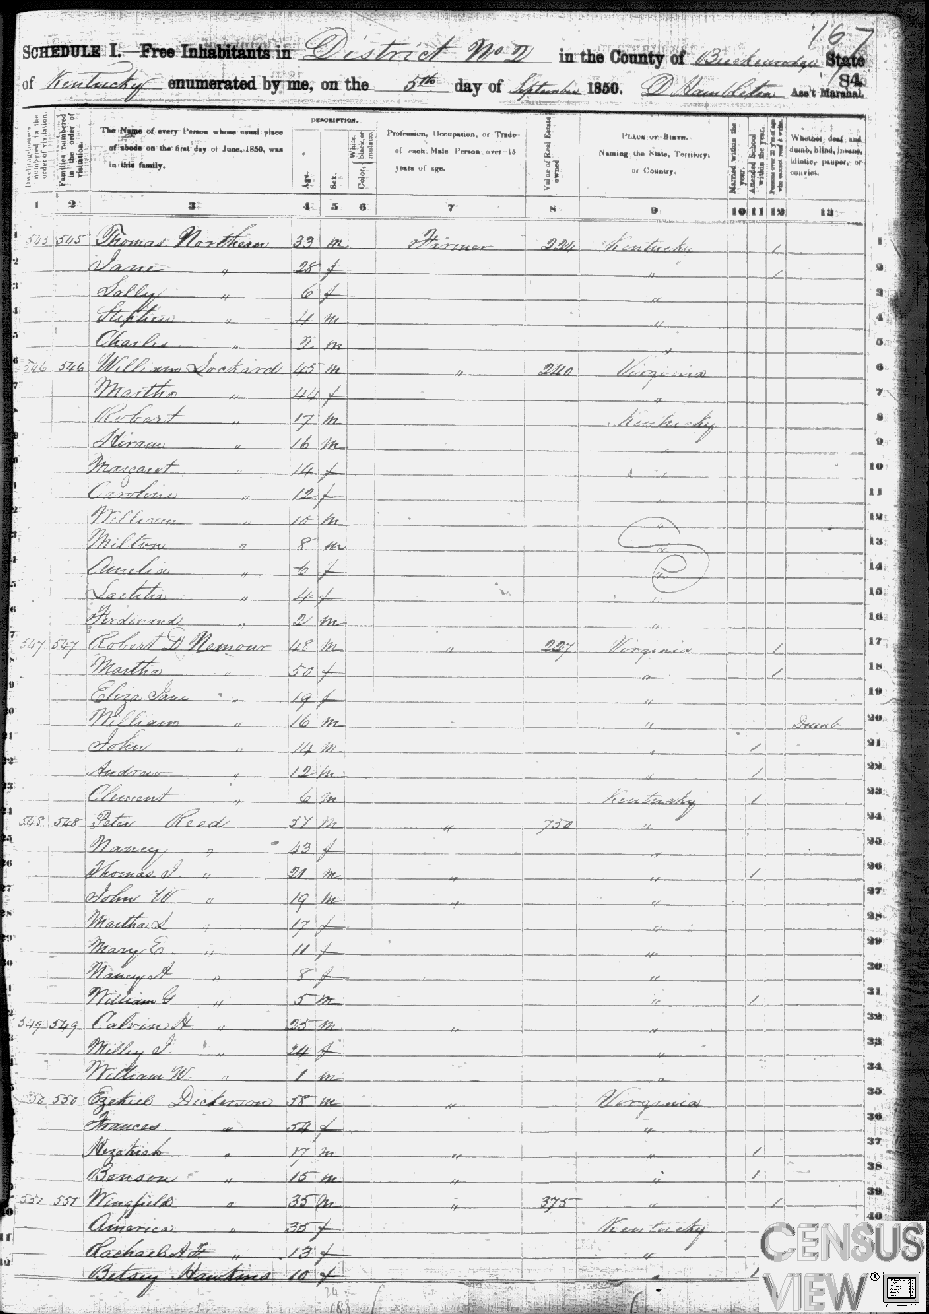 167
SCHEDULE I.—Free Inhabitants in District No 2 in the County of Breckenridge State
of Kentucky enumerated by me, on the 5th day of September 1850. D Hambleton Ass't Marshal.
84
DESCRIPTION.
Dwelling-houses numbered in the order of visitation.
Families numbered in the order of visitation.
The Name of every Person whose usual place of abode on the first day of June, 1850, was in this family.
Age.
Sex.
Color, White, black, or mulatto.
Profession, Occupation, or Trade of each Male Person over 15 years of age.
Value of Real Estate owned
PLACE OF BIRTH. Naming the State, Territory, or Country.
Married within the year.
Attended School within the year.
Persons over 20 y'rs of age who cannot read & write.
Whether deaf and dumb, blind, insane, idiotic, pauper, or convict.
1 2 3 4 5 6 7 8 9 10 11 12 13
545 545 Thomas Northern 33 m Farmer 224 Kentucky 1 1
Jane " 28 f " 1 2
Sally " 6 f " 3
Stephen " 4 m " 4
Charles " 2 m " 5
546 546 William Lockard 45 m " 240 Virginia 6
Martha " 44 f " 7
Robert " 17 m Kentucky 8
Hiram " 16 m " 9
Margaret " 14 f " 10
Caroline " 12 f " 11
William " 10 m " 12
Milton " 8 m " 13
Aurelia " 6 f " 14
Laetitia " 4 f " 15
Ferdinand " 2 m " 16
547 547 Robert D Nemour 48 m " 227 Virginia 1 17
Martha " 50 f " 1 18
Eliza Jane " 19 f " 19
William " 16 m " Dumb 20
John " 14 m " 1 21
Andrew " 12 m " 1 22
Clement " 6 m Kentucky 1 23
548 548 Peter Reed 57 m " 750 " 24
Nancy " 43 f " 25
Thomas J. " 21 m " " 1 26
John W " 19 m " " 27
Martha S " 17 f " 28
Mary E " 11 f " 29
Nancy A " 8 f " 30
William G " 5 m " 1 31
549 549 Calvin H " 25 m " " 32
Milly J. " 24 f " 33
William W " 1 m " 34
550 550 Ezekiel Dickerson 58 m " Virginia 35
Frances " 54 f " 36
Hezekiah " 17 m " " 1 37
Benson " 15 m " " 1 38
551 551 Wingfield " 35 m " 375 " 1 39
America " 35 f Kentucky 40
Rachael A F " 13 f "
Betsey Hawkins 10 f " 1
CENSUS
VIEW®